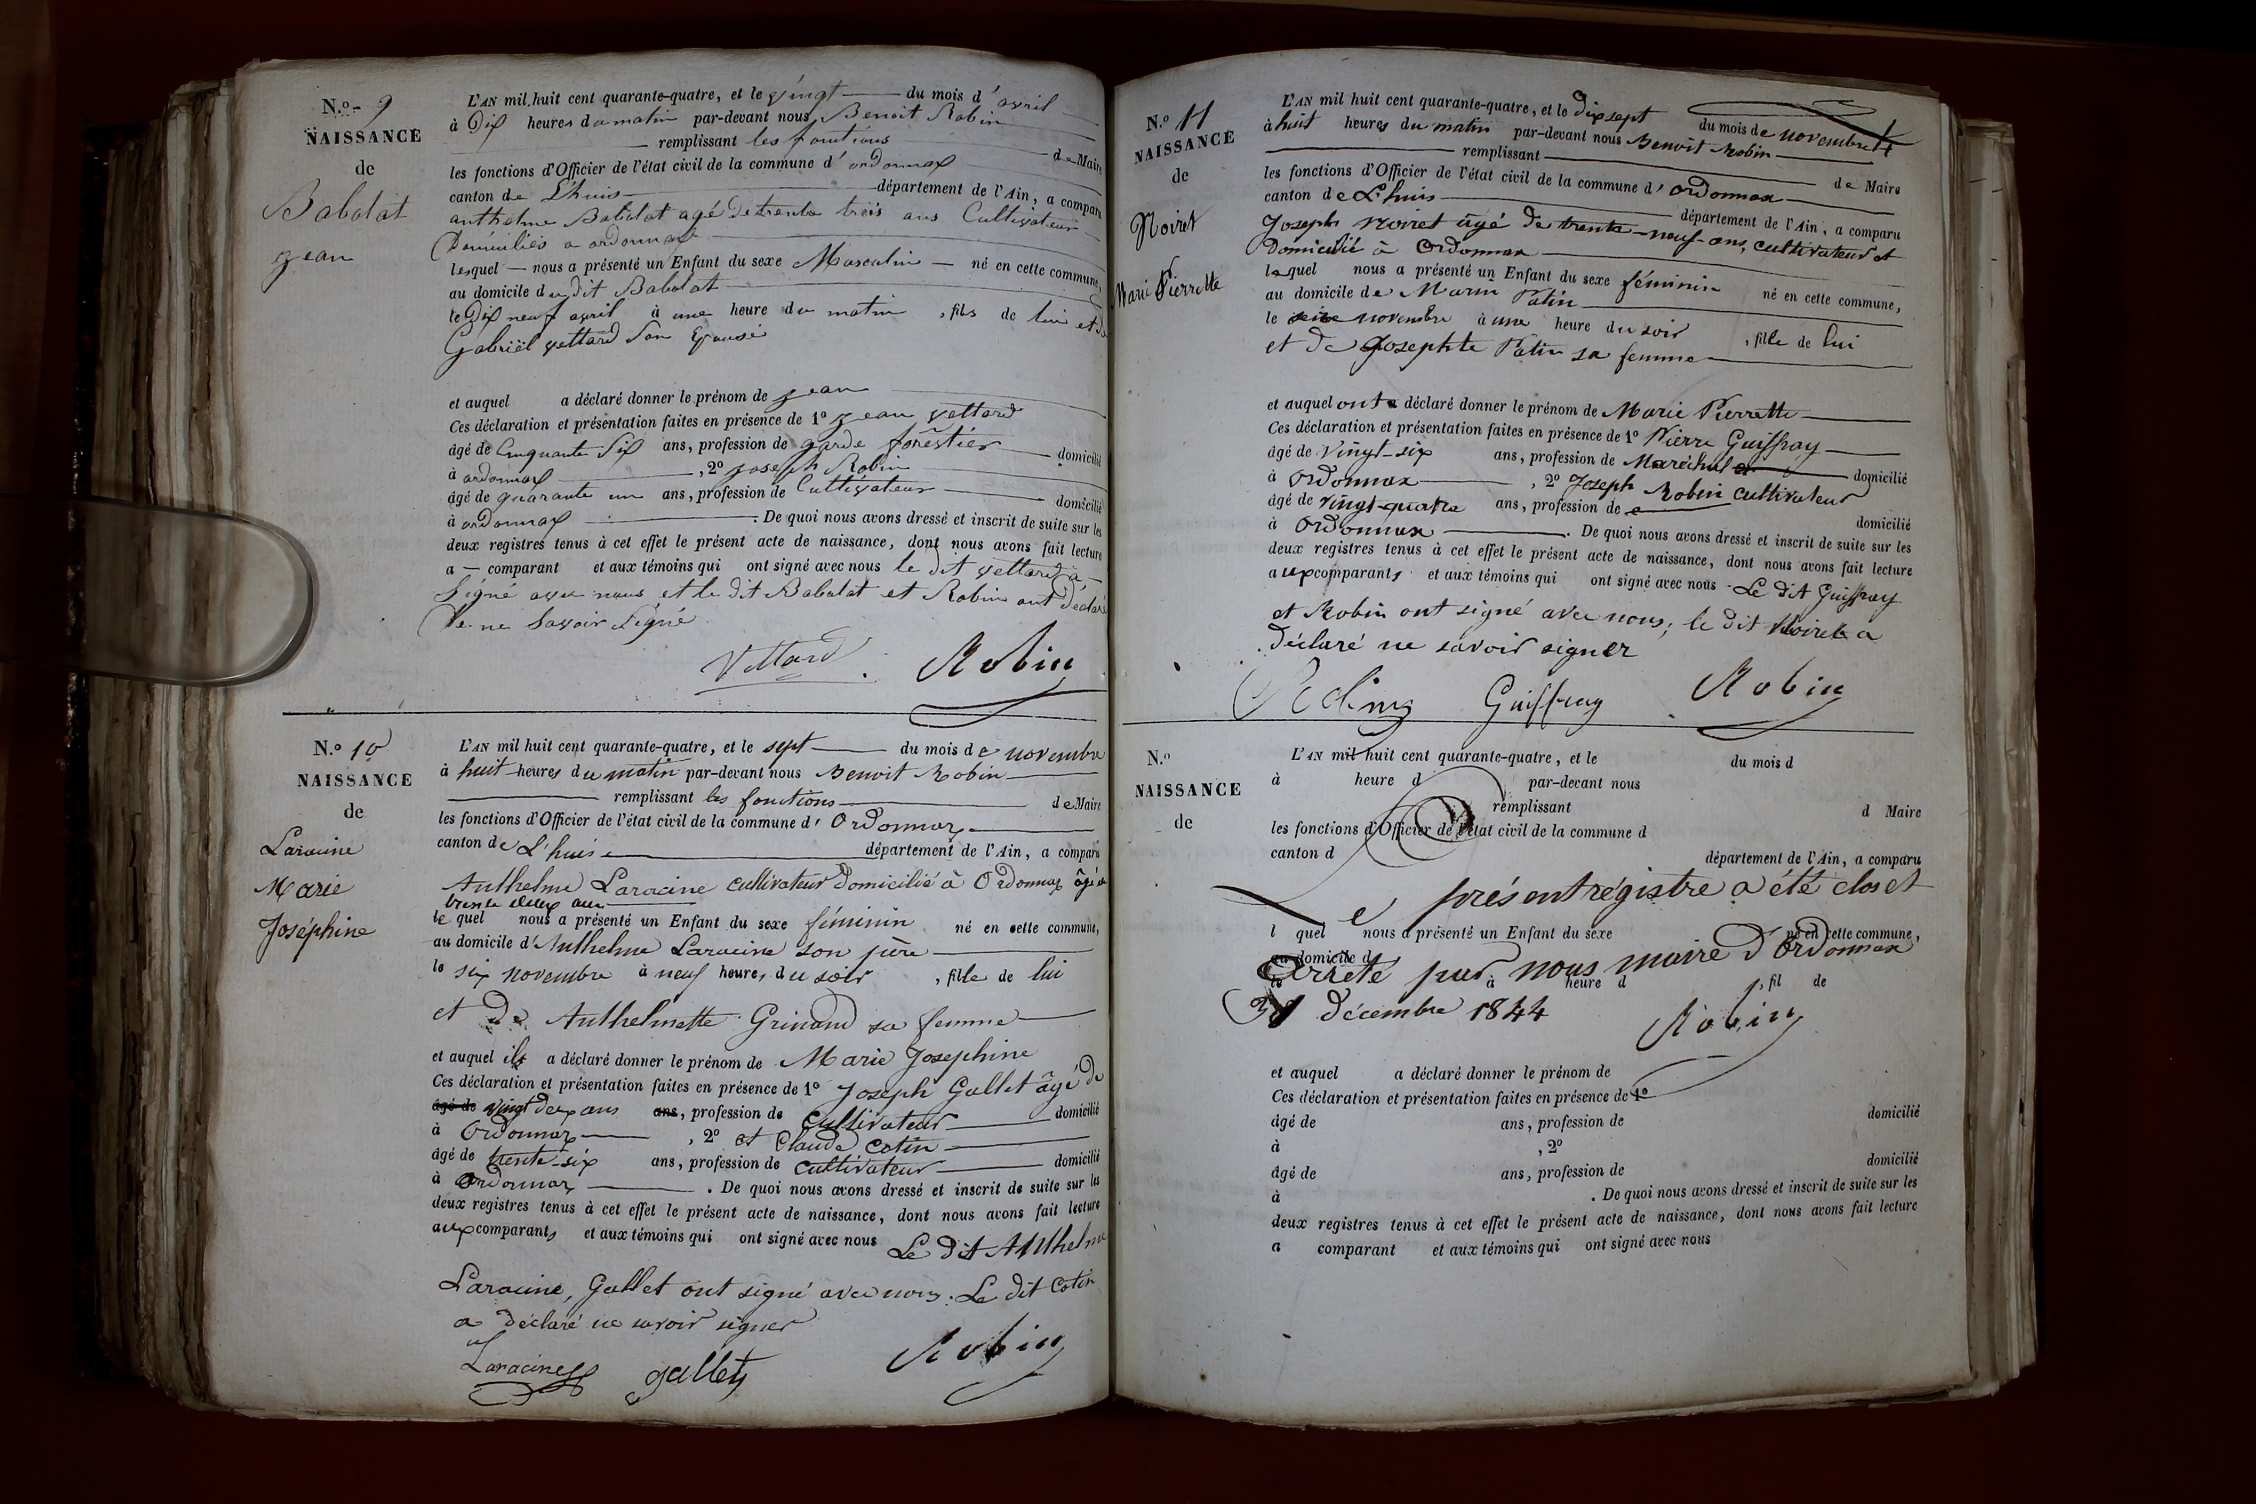 N.o 9
NAISSANCE
de
Babolat
jean
L'AN mil huit cent quarante-quatre, et le vingt du mois d'avril
à Dix heures du matin par-devant nous Benoit Robin
remplissant les fonctions de Maire
les fonctions d'Officier de l'état civil de la commune d'ordonnax
canton de L'huis département de l'Ain, a comparu
anthelme Babolat agé De trente trois ans Cultivateur
Domicilié a ordonnax
lesquel nous a présenté un Enfant du sexe Masculin né en cette commune,
au domicile du dit Babolat
le Dix neuf avril à une heure du matin, fils de lui et de
Gabriël vettard Son Epouse
et auquel a déclaré donner le prénom de jean
Ces déclaration et présentation faites en présence de 1o jean vettard
âgé de Cinquante Six ans, profession de garde forestier domicilié
à ordonnax, 2o joseph Robin
âgé de quarante un ans, profession de Cultivateur domicilié
à ordonnax. De quoi nous avons dressé et inscrit de suite sur les
deux registres tenus à cet effet le présent acte de naissance, dont nous avons fait lecture
a comparant et aux témoins qui ont signé avec nous le dit vettard a
Signé avec nous et le dit Babolat et Robin ont Déclaré
De ne Savoir Signé
Vettard Robin
N.o 10
NAISSANCE
de
Laracine
Marie
Joséphine
L'AN mil huit cent quarante-quatre, et le sept du mois de novembre
à huit heures du matin par-devant nous Benoit Robin
remplissant les fonctions de Maire
les fonctions d'Officier de l'état civil de la commune d'Ordonnax
canton de L'huis département de l'Ain, a comparu
Anthelme Laracine cultivateur Domicilié à Ordonnax âgé de
trente deux ans
le quel nous a présenté un Enfant du sexe féminin né en cette commune,
au domicile d'Anthelme Laracine son père
le six novembre à neuf heures du soir, fille de lui
et De Anthelmette Grinand sa femme
et auquel ils a déclaré donner le prénom de Marie Josephine
Ces déclaration et présentation faites en présence de 1o Joseph Gallet âgé de
âgé de vingt deux ans ans, profession de cultivateur domicilié
à Ordonnax, 2o et Claude Cotin
âgé de trente-six ans, profession de cultivateur domicilié
à Ordonnax. De quoi nous avons dressé et inscrit de suite sur les
deux registres tenus à cet effet le présent acte de naissance, dont nous avons fait lecture
aux comparants et aux témoins qui ont signé avec nous Le Dit Anthelme
Laracine, Gallet ont signé avec nous. Le Dit Cotin
a Déclaré ne savoir signer
Laracine gallet Robin
N.o 11
NAISSANCE
de
Noiret
Marie Pierrette
L'AN mil huit cent quarante-quatre, et le Dix sept du mois de novembre
à huit heures du matin par-devant nous Benoit Robin
remplissant de Maire
les fonctions d'Officier de l'état civil de la commune d'Ordonnax
canton de L'huis département de l'Ain, a comparu
Joseph Noiret âgé De trente-neuf-ans, cultivateur et
Domicilié à Ordonnax
lequel nous a présenté un Enfant du sexe féminin né en cette commune,
au domicile de Marin Patin
le seize novembre à une heure du soir, fille de lui
et De Josephte Patin sa femme
et auquel ont a déclaré donner le prénom de Marie Pierrette
Ces déclaration et présentation faites en présence de 1o Pierre Guiffray
âgé de Vingt-six ans, profession de Maréchal domicilié
à Ordonnax, 2o Joseph Robin cultivateur
âgé de vingt-quatre ans, profession de domicilié
à Ordonnax. De quoi nous avons dressé et inscrit de suite sur les
deux registres tenus à cet effet le présent acte de naissance, dont nous avons fait lecture
aux comparants et aux témoins qui ont signé avec nous Le Dit Guiffray
et Robin ont signé avec nous; le dit Noiret a
Déclaré ne savoir signer
Guiffray Robin
N.o
NAISSANCE
de
L'AN mil huit cent quarante-quatre, et le du mois d
à heure d par-devant nous
remplissant d Maire
les fonctions d'Officier de l'état civil de la commune d
canton d département de l'Ain, a comparu
Le présent régistre a été clos et
l quel nous a présenté un Enfant du sexe né en cette commune,
au domicile d
arrêté par nous maire D'Ordonnax
le à heure d, fil de
31 Décembre 1844
Robin
et auquel a déclaré donner le prénom de
Ces déclaration et présentation faites en présence de 1o
âgé de ans, profession de domicilié
à, 2o
âgé de ans, profession de domicilié
à. De quoi nous avons dressé et inscrit de suite sur les
deux registres tenus à cet effet le présent acte de naissance, dont nous avons fait lecture
a comparant et aux témoins qui ont signé avec nous